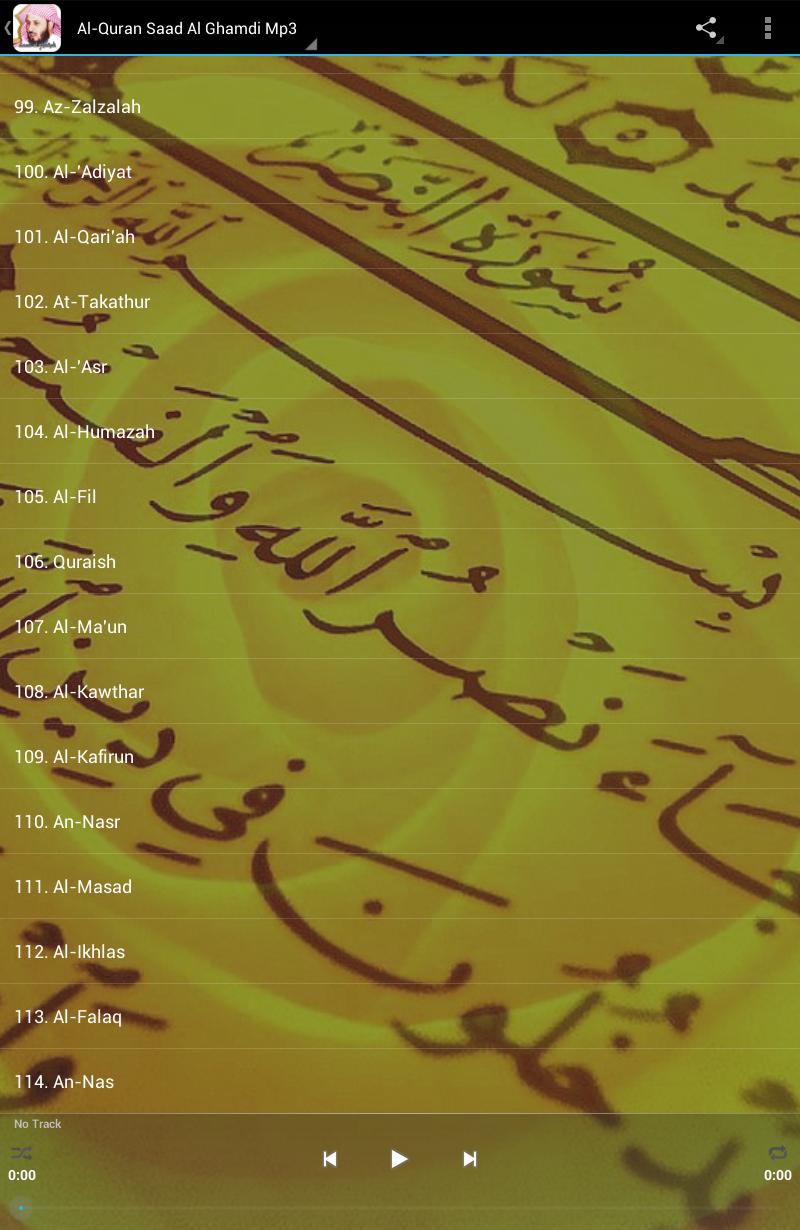 Al-Quran Saad Al Ghamdi Mp3
99. Az-Zalzalah
100. Al-'Adiyat
101. Al-Qari'ah
102. At-Takathur
103. Al-'Asr
104. Al-Humazah
105. Al-Fil
106. Quraish
107. Al-Ma'un
108. Al-Kawthar
109. Al-Kafirun
110. An-Nasr
111. Al-Masad
112. Al-Ikhlas
113. Al-Falaq
114. An-Nas
No Track
0:00
0:00
سُورَةُ النَّصْرِ
نَصْرُ اللَّهِ وَالْفَتْحُ
فِي دِينِ